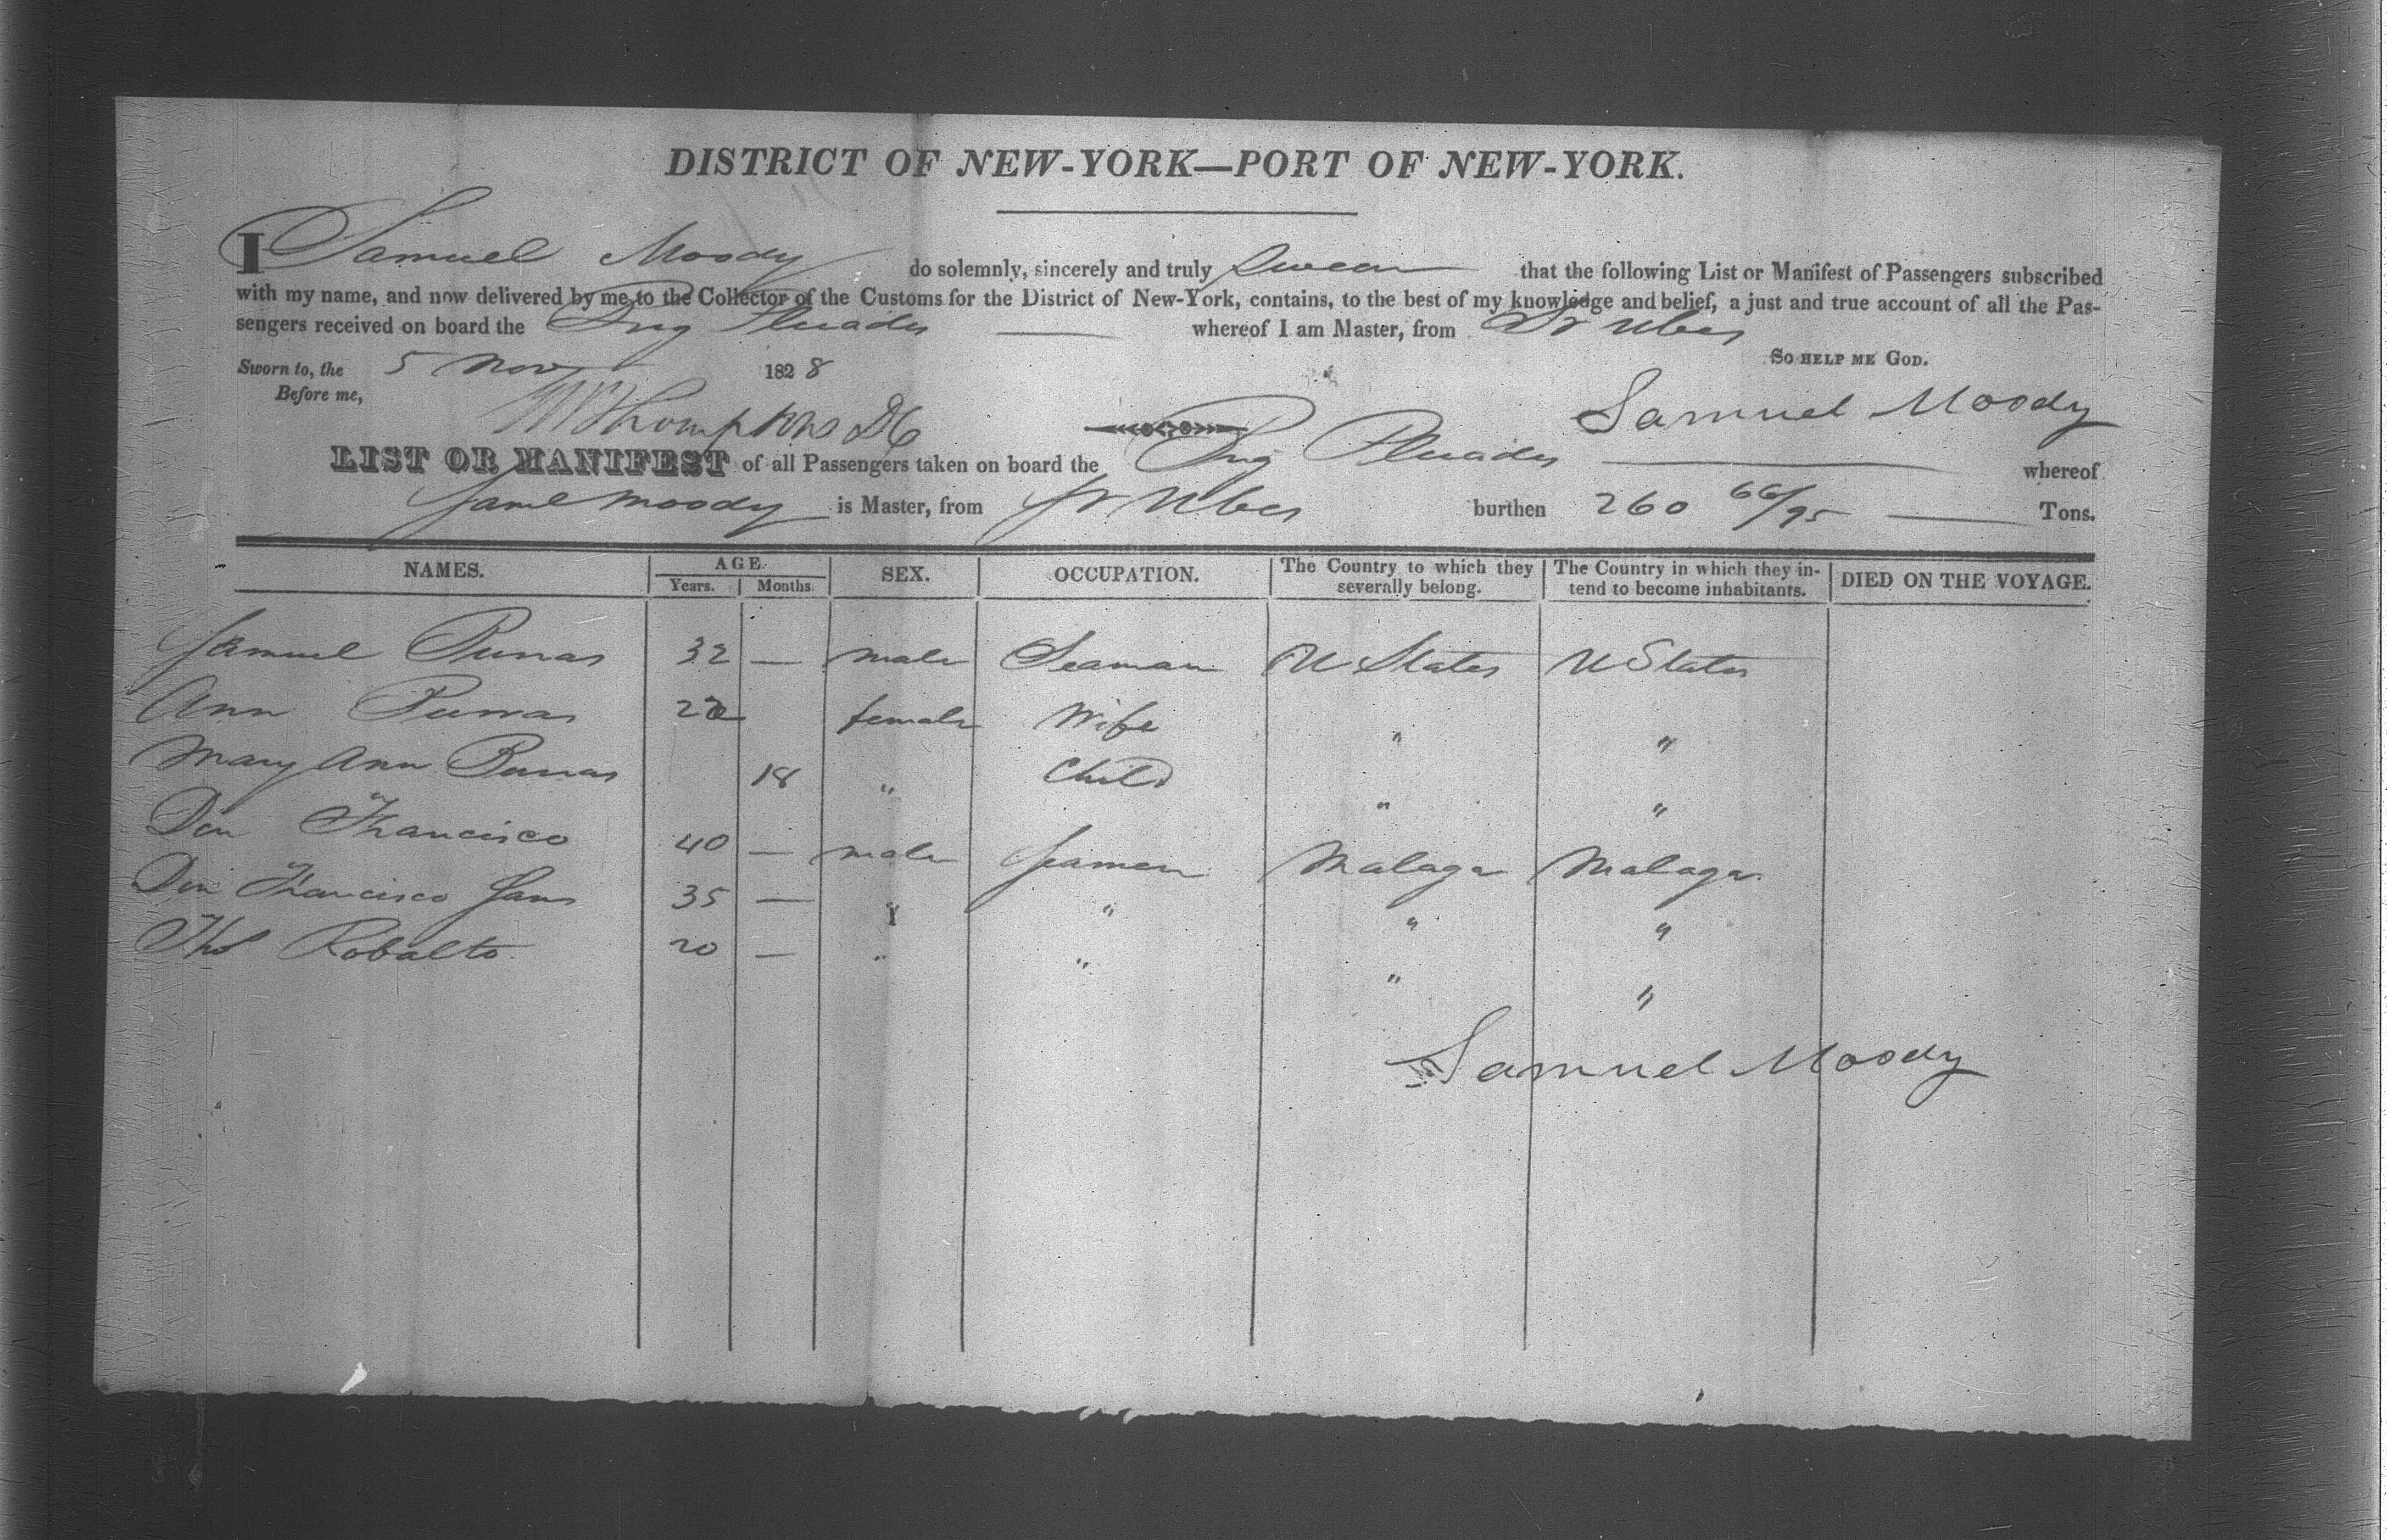 DISTRICT OF NEW-YORK—PORT OF NEW-YORK.
I Samuel Moody do solemnly, sincerely and truly Swear that the following List or Manifest of Passengers subscribed
with my name, and now delivered by me to the Collector of the Customs for the District of New-York, contains, to the best of my knowledge and belief, a just and true account of all the Pas-
sengers received on board the Brig Pleiades whereof I am Master, from St Ubes
SO HELP ME GOD.
Sworn to, the 5 Nov 1828
Before me,
Samuel Moody
W Thompson DC
LIST OR MANIFEST of all Passengers taken on board the Brig Pleiades whereof
Saml Moody is Master, from St Ubes burthen 260 66/95 Tons.
NAMES. AGE. Years. Months. SEX. OCCUPATION. The Country to which they severally belong. The Country in which they intend to become inhabitants. DIED ON THE VOYAGE.
Samuel 32 — male Seaman U States U States
Ann female Wife " "
Mary Ann 18 " Child " "
Don Francisco 40 — male Seamen Malaga Malaga
Don Francisco 35 — " " " "
Thos Robalto 20 — " " " "
Samuel Moody